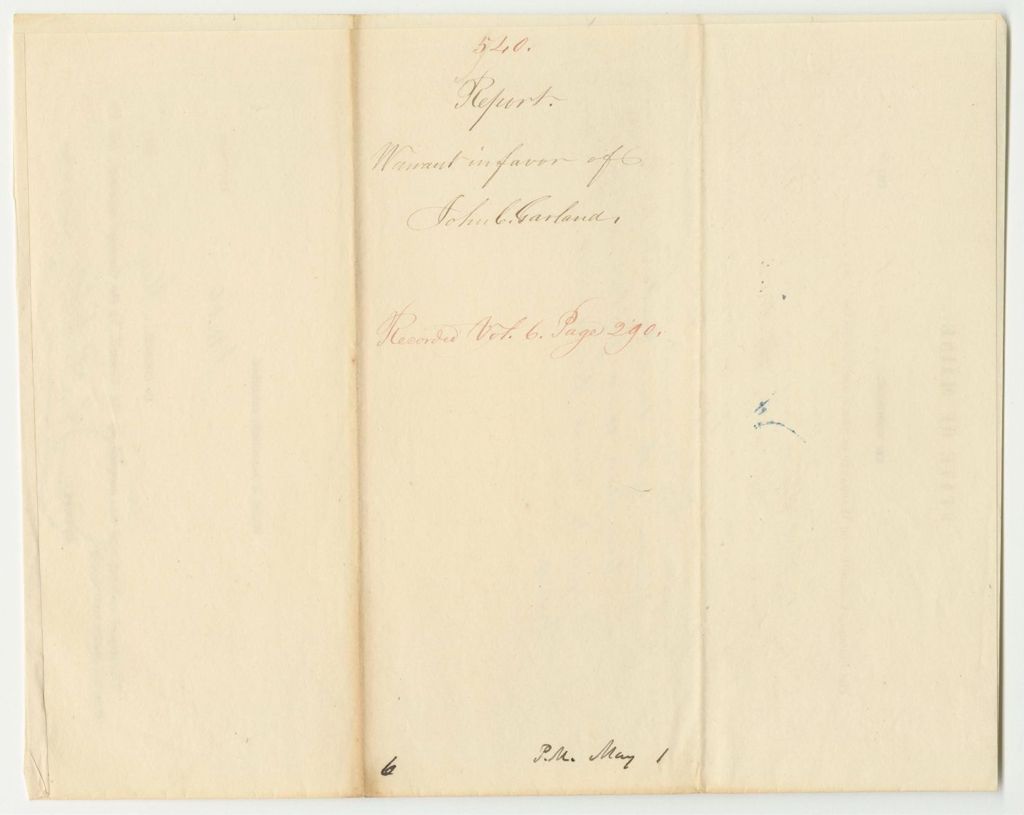 540.
Report.
Warrant in favor of
John C. Garland.
Recorded Vol. 6. Page 290.
6
P.M. May 1